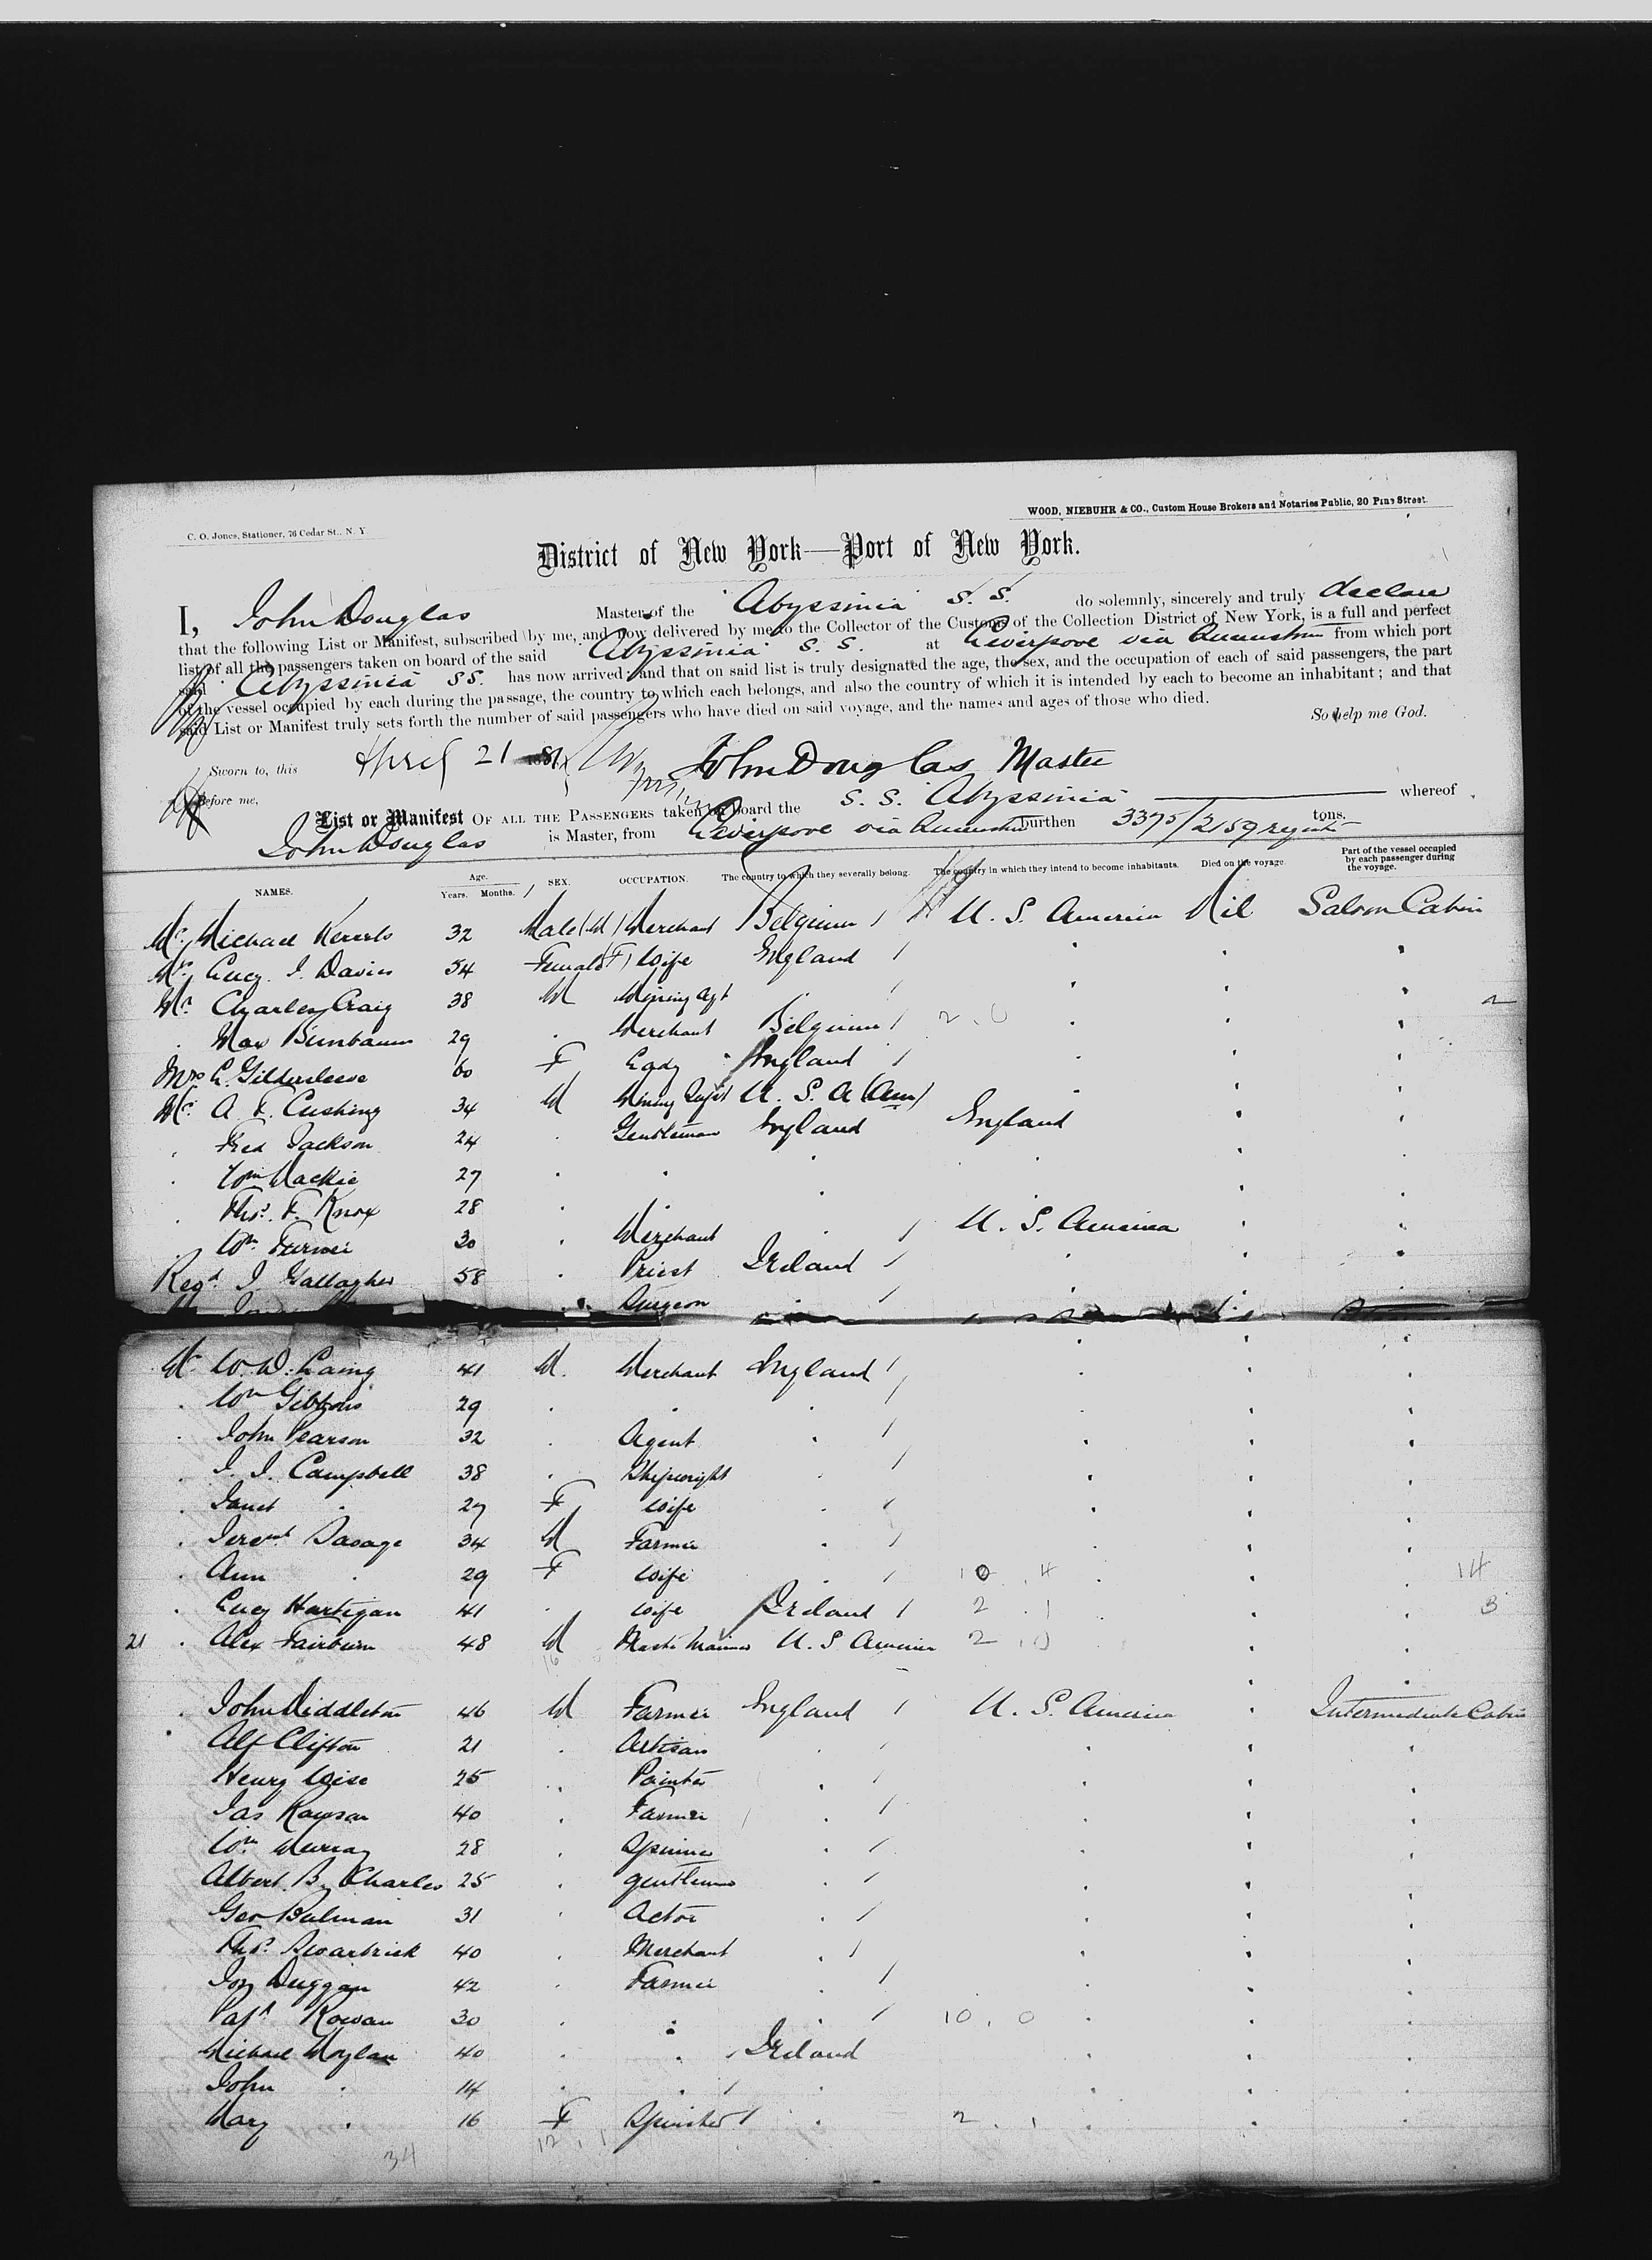 WOOD, NIEBUHR & CO., Custom House Brokers and Notaries Public, 20 Pine Street.
C. O. Jones, Stationer, 76 Cedar St., N. Y.
District of New York—Port of New York.
I, John Douglas Master of the "Abyssinia" S. S. do solemnly, sincerely and truly declare
that the following List or Manifest, subscribed by me, and now delivered by me to the Collector of the Customs of the Collection District of New York, is a full and perfect
list of all the passengers taken on board of the said "Abyssinia" S. S. at Liverpool via Queenstown from which port
said "Abyssinia" SS. has now arrived; and that on said list is truly designated the age, the sex, and the occupation of each of said passengers, the part
of the vessel occupied by each during the passage, the country to which each belongs, and also the country of which it is intended by each to become an inhabitant; and that
said List or Manifest truly sets forth the number of said passengers who have died on said voyage, and the names and ages of those who died.
So help me God.
Sworn to, this April 21 1881 John Douglas Master
Before me,
List or Manifest OF ALL THE PASSENGERS taken on board the S. S. "Abyssinia" whereof
John Douglas is Master, from Liverpool via Queenstown burthen 3375/2159 tons.
NAMES. Age. Years. Months. SEX. OCCUPATION. The country to which they severally belong. The country in which they intend to become inhabitants. Died on the voyage. Part of the vessel occupied by each passenger during the voyage.
Mr Michael 32 Male (M) Merchant Belgium U. S. America Nil Saloon Cabin
Mrs Lucy J. Davies 54 Female (F) Wife England
Mr Charles Craig 38 M Mining Agt
Max Birnbaum 29 Merchant Belgium 2 . 0
Mrs E. Gildersleeve 60 F Lady England
Mr A. F. Cushing 34 M Mining Supt U. S. A (Am)
Fred Jackson 24 Gentleman England England
Wm Mackie 27
Thos. F. Knox 28
Wm Turner 30 Merchant U. S. America
Revd. J Gallagher 58 Priest Ireland
Surgeon
Mr W. D. Laing 41 M. Merchant England
Wm Gibbons 29
John Pearson 32 Agent
J. J. Campbell 38 Shipwright
Janet " 27 F Wife
Savage 34 M Farmer
Ann " 29 F Wife 10 . 4 14
Lucy Hartigan 41 Wife Ireland 2 . 1 3
21 Alex Fairburn 48 M Master Mariner U. S America 2 . 0
John Middleton 46 M Farmer England U. S. America Intermediate Cabin
Alf Clifton 21 Artisan
Henry Wise 25 Painter
Jas Rawson 40 Farmer
Wm Murray 28 Spinner
Albert B. Charles 25 gentleman
Geo Bulman 31 Actor
Thos. Swarbrick 40 Merchant
Duggan 42 Farmer
Rowan 30 10 . 0
Michael Moylan 40 Ireland
John " 14
Mary " 16 F Spinster 2 . 1
34 12 . 1